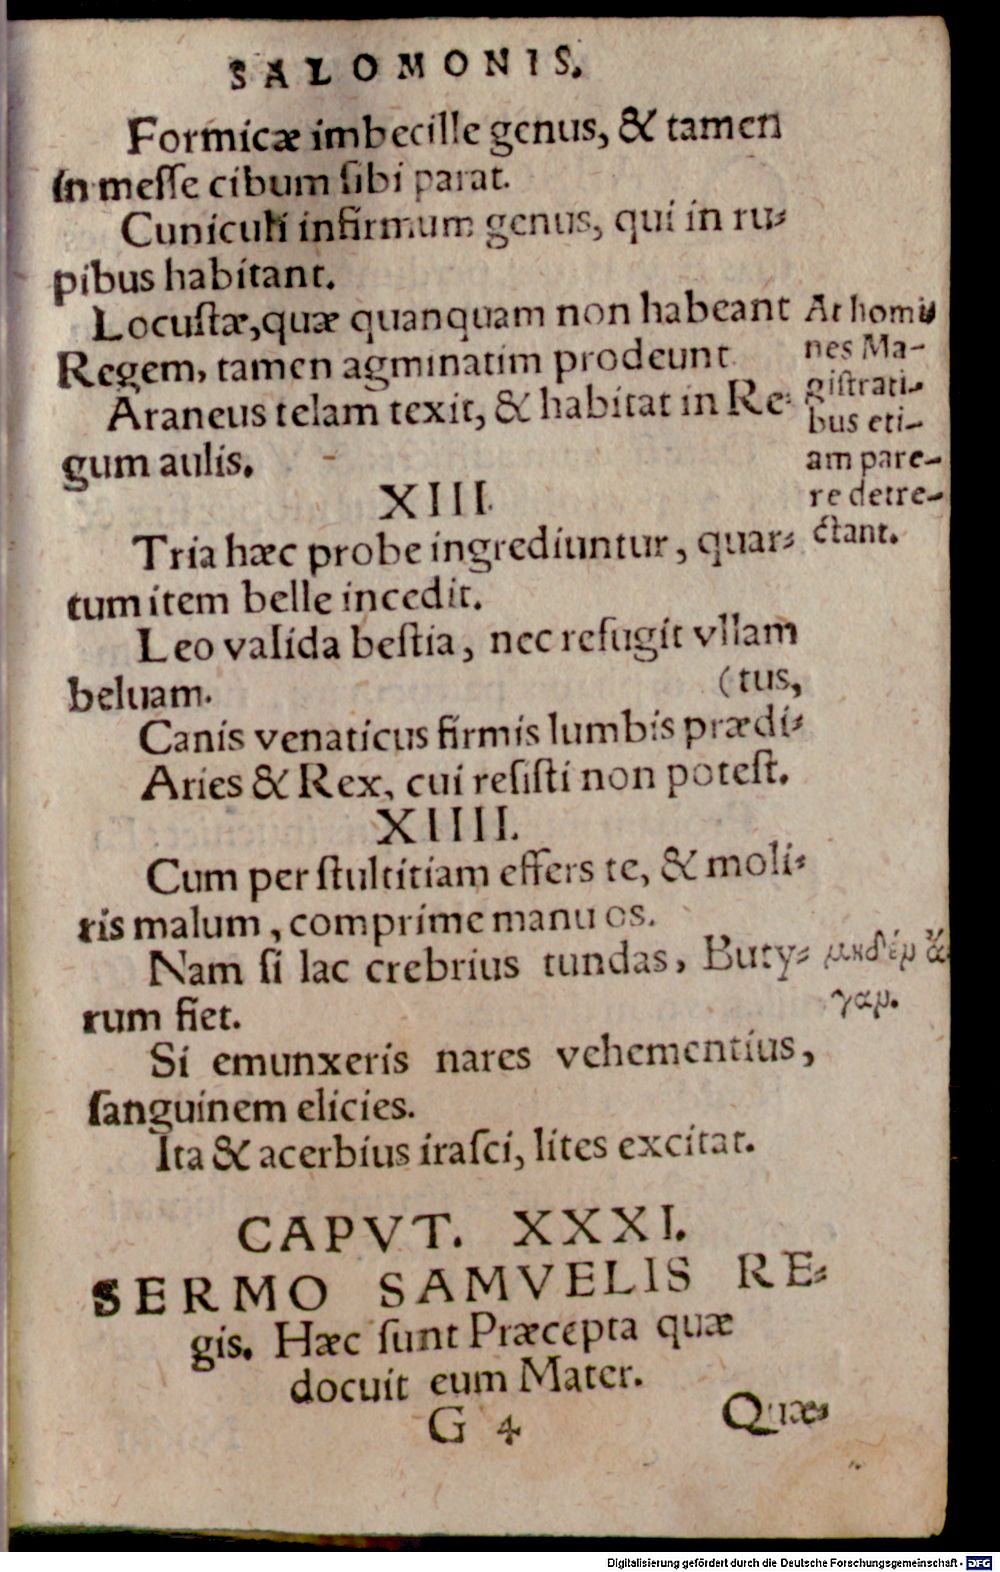 SALOMONIS.
Formicæ imbecille genus, & tamen
in messe cibum sibi parat.
Cuniculi infirmum genus, qui in ru-
pibus habitant.
Locustæ, quæ quanquam non habeant
Regem, tamen agminatim prodeunt
Araneus telam texit, & habitat in Re-
gum aulis.
At homi
nes Ma-
gistrati-
bus eti-
am pare-
re detre-
ctant.
XIII.
Tria hæc probe ingrediuntur, quar-
tum item belle incedit.
Leo valida bestia, nec refugit vllam
beluam.
(tus,
Canis venaticus firmis lumbis prædi-
Aries & Rex, cui resisti non potest.
XIIII.
Cum per stultitiam effers te, & moli-
ris malum, comprime manu os.
Nam si lac crebrius tundas, Buty-
rum fiet.
γαρ.
Si emunxeris nares vehementius,
sanguinem elicies.
Ita & acerbius irasci, lites excitat.
CAPVT. XXXI.
SERMO SAMVELIS RE-
gis. Hæc sunt Præcepta quæ
docuit eum Mater.
G 4
Quæ-
Digitalisierung gefördert durch die Deutsche Forschungsgemeinschaft - DFG